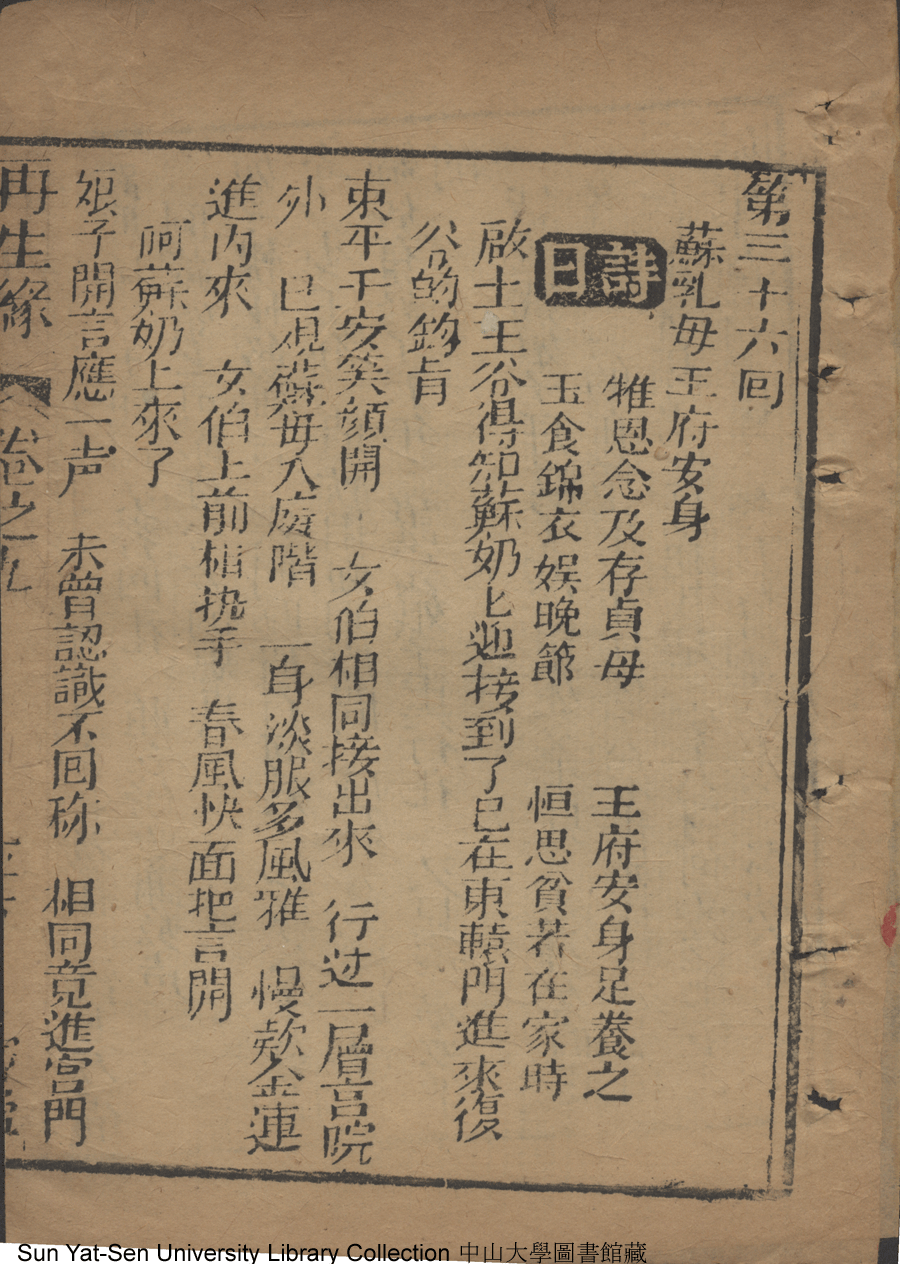 第三十六回
蘇乳母王府安身
詩曰
惟恩念及存貞母　王府安身足養之
玉食錦衣娛晚節　恒思貧若在家時
啟上王爷得知蘇奶匕迎接到了已在東轅門進來復
爷的鈞旨
東平千岁笑顔開　女伯相同接出來　行过二層宫院
外　已見蘇母入庭階　一身淡服多風雅　慢欵金蓮
進内來　女伯上前相扨手　春風快面把言開
呵蘇奶上來了
娘子開言應一声　未曾認識不回称　相同竟進宫門
再生緣　卷之九
Sun Yat-Sen University Library Collection 中山大學圖書館藏